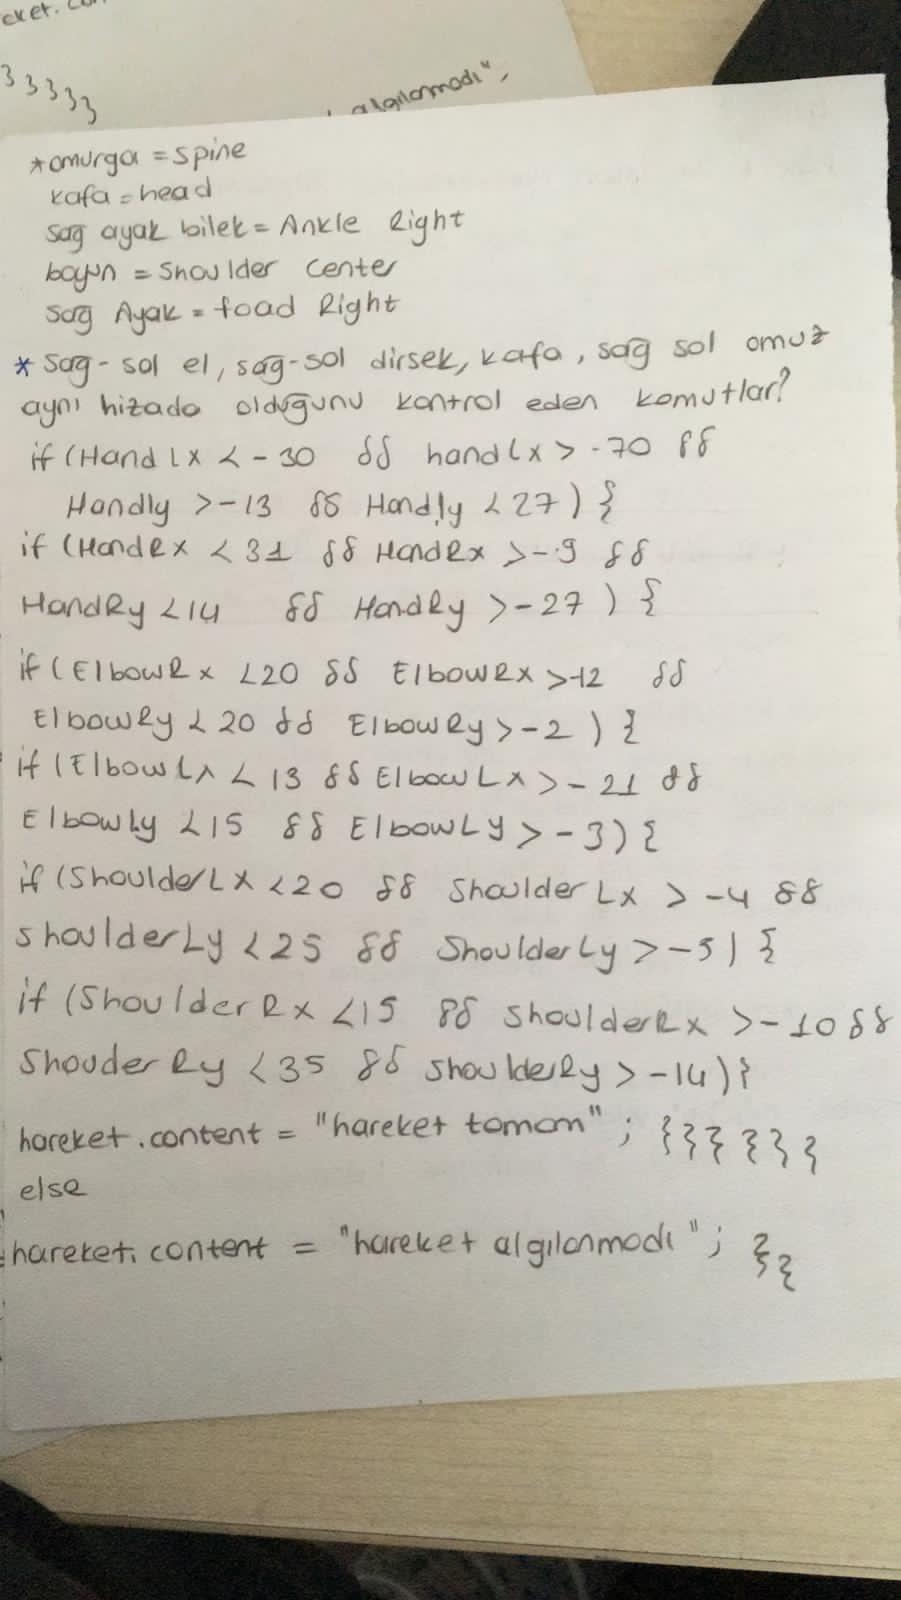 eket.
}}}}}
algılanmadı",
*omurga = spine
kafa = head
sağ ayak bilek = Ankle Right
boyun = Shoulder Center
Sağ Ayak = foad Right
* Sağ-sol el, sağ-sol dirsek, kafa, sağ sol omuz
aynı hizada olduğunu kontrol eden komutlar?
if (Hand Lx < -30 && handLx > -70 &&
Handly > -13 && Handly < 27) {
if (HandRx < 31 && HandRx > -9 &&
HandRy < 14 && HandRy > -27) {
if (ElbowRx < 20 && ElbowRx > -12 &&
ElbowRy < 20 && ElbowRy > -2) {
if (ElbowLx < 13 && ElbowLx > -21 &&
ElbowLy < 15 && ElbowLy > -3) {
if (ShoulderLx < 20 && ShoulderLx > -4 &&
shoulderLy < 25 && ShoulderLy > -5) {
if (ShoulderRx < 15 && shoulderRx > -10 &&
ShouderRy < 35 && shoulderRy > -14) }
hareket.content = "hareket tamam" ; }}}}}}
else
hareket.content = "hareket algılanmadı" ; }}